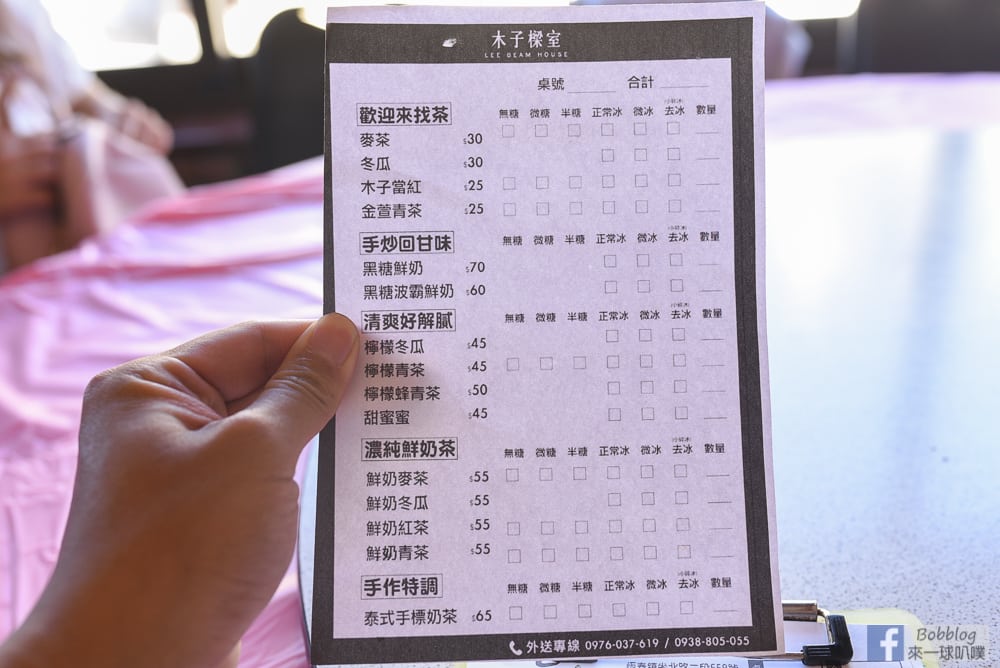 木子樑室
LEE BEAM HOUSE
桌號 合計
歡迎來找茶 無糖 微糖 半糖 正常冰 微冰 去冰 數量
麥茶 $30
冬瓜 $30
木子當紅 $25
金萱青茶 $25
手炒回甘味 無糖 微糖 半糖 正常冰 微冰 去冰 數量
黑糖鮮奶 $70
黑糖波霸鮮奶 $60
清爽好解膩 無糖 微糖 半糖 正常冰 微冰 去冰 數量
檸檬冬瓜 $45
檸檬青茶 $45
檸檬蜂青茶 $50
甜蜜蜜 $45
濃純鮮奶茶 無糖 微糖 半糖 正常冰 微冰 去冰 數量
鮮奶麥茶 $55
鮮奶冬瓜 $55
鮮奶紅茶 $55
鮮奶青茶 $55
手作特調 無糖 微糖 半糖 正常冰 微冰 去冰 數量
泰式手標奶茶 $65
外送專線 0976-037-619 / 0938-805-055
f Bobblog
來一球叭噗